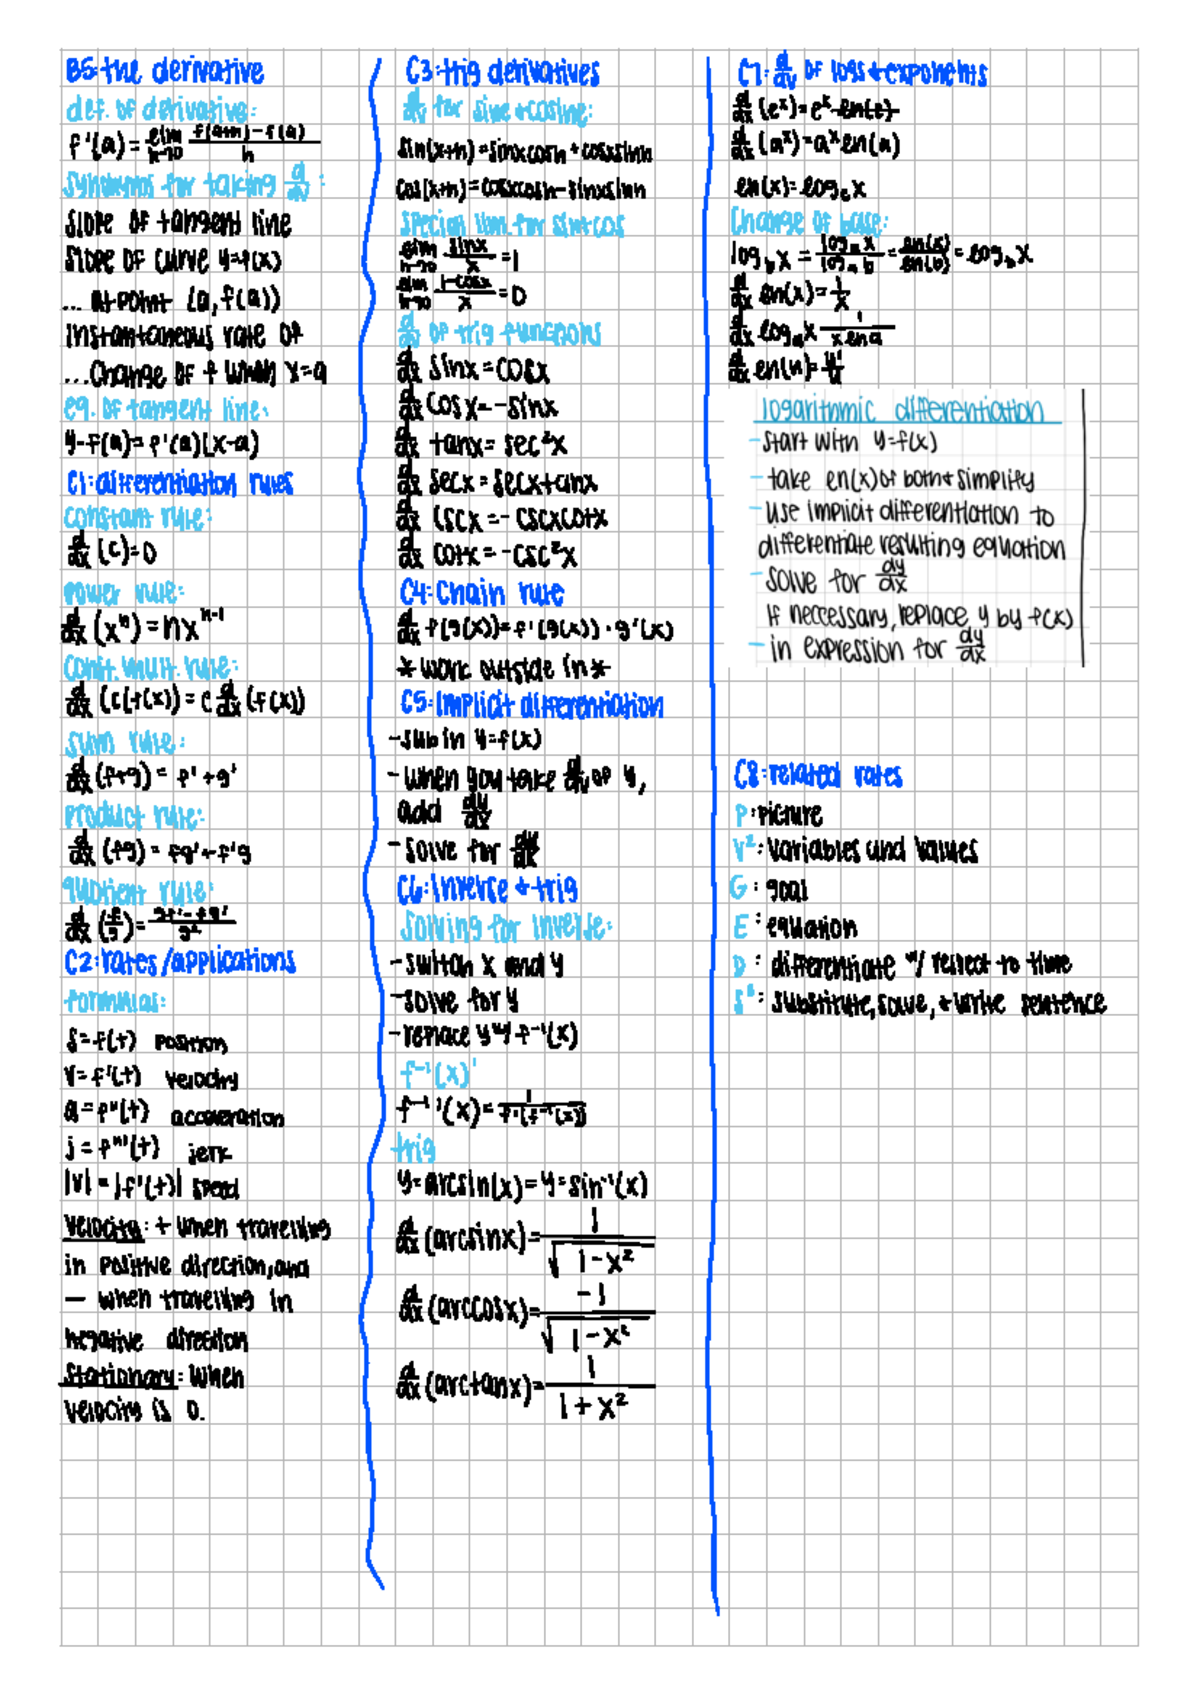 B5: the derivative
def. of derivative:
f'(a) = lim h→0 f(a+h) - f(a) / h
Synonyms for taking d/dx:
Slope of tangent line
Slope of curve y=f(x)
... at point (a, f(a))
Instantaneous rate of
... Change of f when x=a
eq. of tangent line:
y-f(a)=f'(a)(x-a)
C1: differentiation rules
constant rule:
d/dx (c)=0
power rule:
d/dx (xⁿ) = nxⁿ⁻¹
const. mult. rule:
d/dx (c(f(x)) = c d/dx (f(x))
sum rule:
d/dx (f+g) = f' + g'
product rule:
d/dx (fg) = fg' + f'g
quotient rule:
d/dx (f/g) = gf' - fg' / g²
C2: rates/applications
formulas:
s=f(t) position
v=f'(t) velocity
a=f''(t) acceleration
j=f'''(t) jerk
|v| = |f'(t)| speed
velocity: + when travelling
in positive direction, and
— when travelling in
negative direction
Stationary: when
velocity is 0.
C3: trig derivatives
d/dx for sine + cosine:
sin(x+h) = sinxcosh + cosxsinh
cos(x+h) = cosxcosh - sinxsinh
special lim. for sin+cos
lim h→0 sinx/x = 1
lim h→0 1-cosx/x = 0
d/dx of trig functions
d/dx sinx = cosx
d/dx cosx = -sinx
d/dx tanx = sec²x
d/dx secx = secxtanx
d/dx cscx = -cscxcotx
d/dx cotx = -csc²x
C4: Chain rule
d/dx f(g(x)) = f'(g(x)) · g'(x)
* work outside in *
C5: Implicit differentiation
- sub in y=f(x)
- when you take d/dx of y,
add dy/dx
- solve for dy/dx
C6: Inverse + trig
Solving for inverse:
- switch x and y
- solve for y
- replace y w/ f⁻¹(x)
f⁻¹(x)'
f⁻¹'(x) = 1 / f'(f⁻¹(x))
trig
y=arcsin(x) = y=sin⁻¹(x)
d/dx (arcsinx) = 1 / √1-x²
d/dx (arccosx) = -1 / √1-x²
d/dx (arctanx) = 1 / 1+x²
C7: d/dx of logs + exponents
d/dx (eˣ) = eˣ ln(e)
d/dx (aˣ) = aˣ ln(a)
ln(x) = logₑx
Change of base:
log_b x = log_a x / log_a b = ln(x) / ln(b) = log_b x
d/dx ln(x) = 1/x
d/dx logₐx 1 / x ln a
d/dx ln(u) = u'/u
logarithmic differentiation
- start with y=f(x)
- take ln(x) of both + simplify
- use implicit differentiation to
differentiate resulting equation
- solve for dy/dx
If neccessary, replace y by f(x)
- in expression for dy/dx
C8: related rates
P: picture
V²: variables and values
G: goal
E: equation
D: differentiate w/ respect to time
S³: substitute, solve, + write sentence